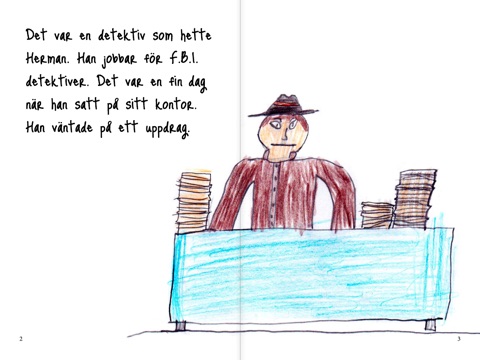 Det var en detektiv som hette
Herman. Han jobbar för F.B.I.
detektiver. Det var en fin dag
när han satt på sitt kontor.
Han väntade på ett uppdrag.
2
3